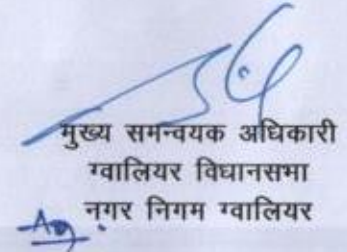 मुख्य समन्वयक अधिकारी
ग्वालियर विधानसभा
नगर निगम ग्वालियर